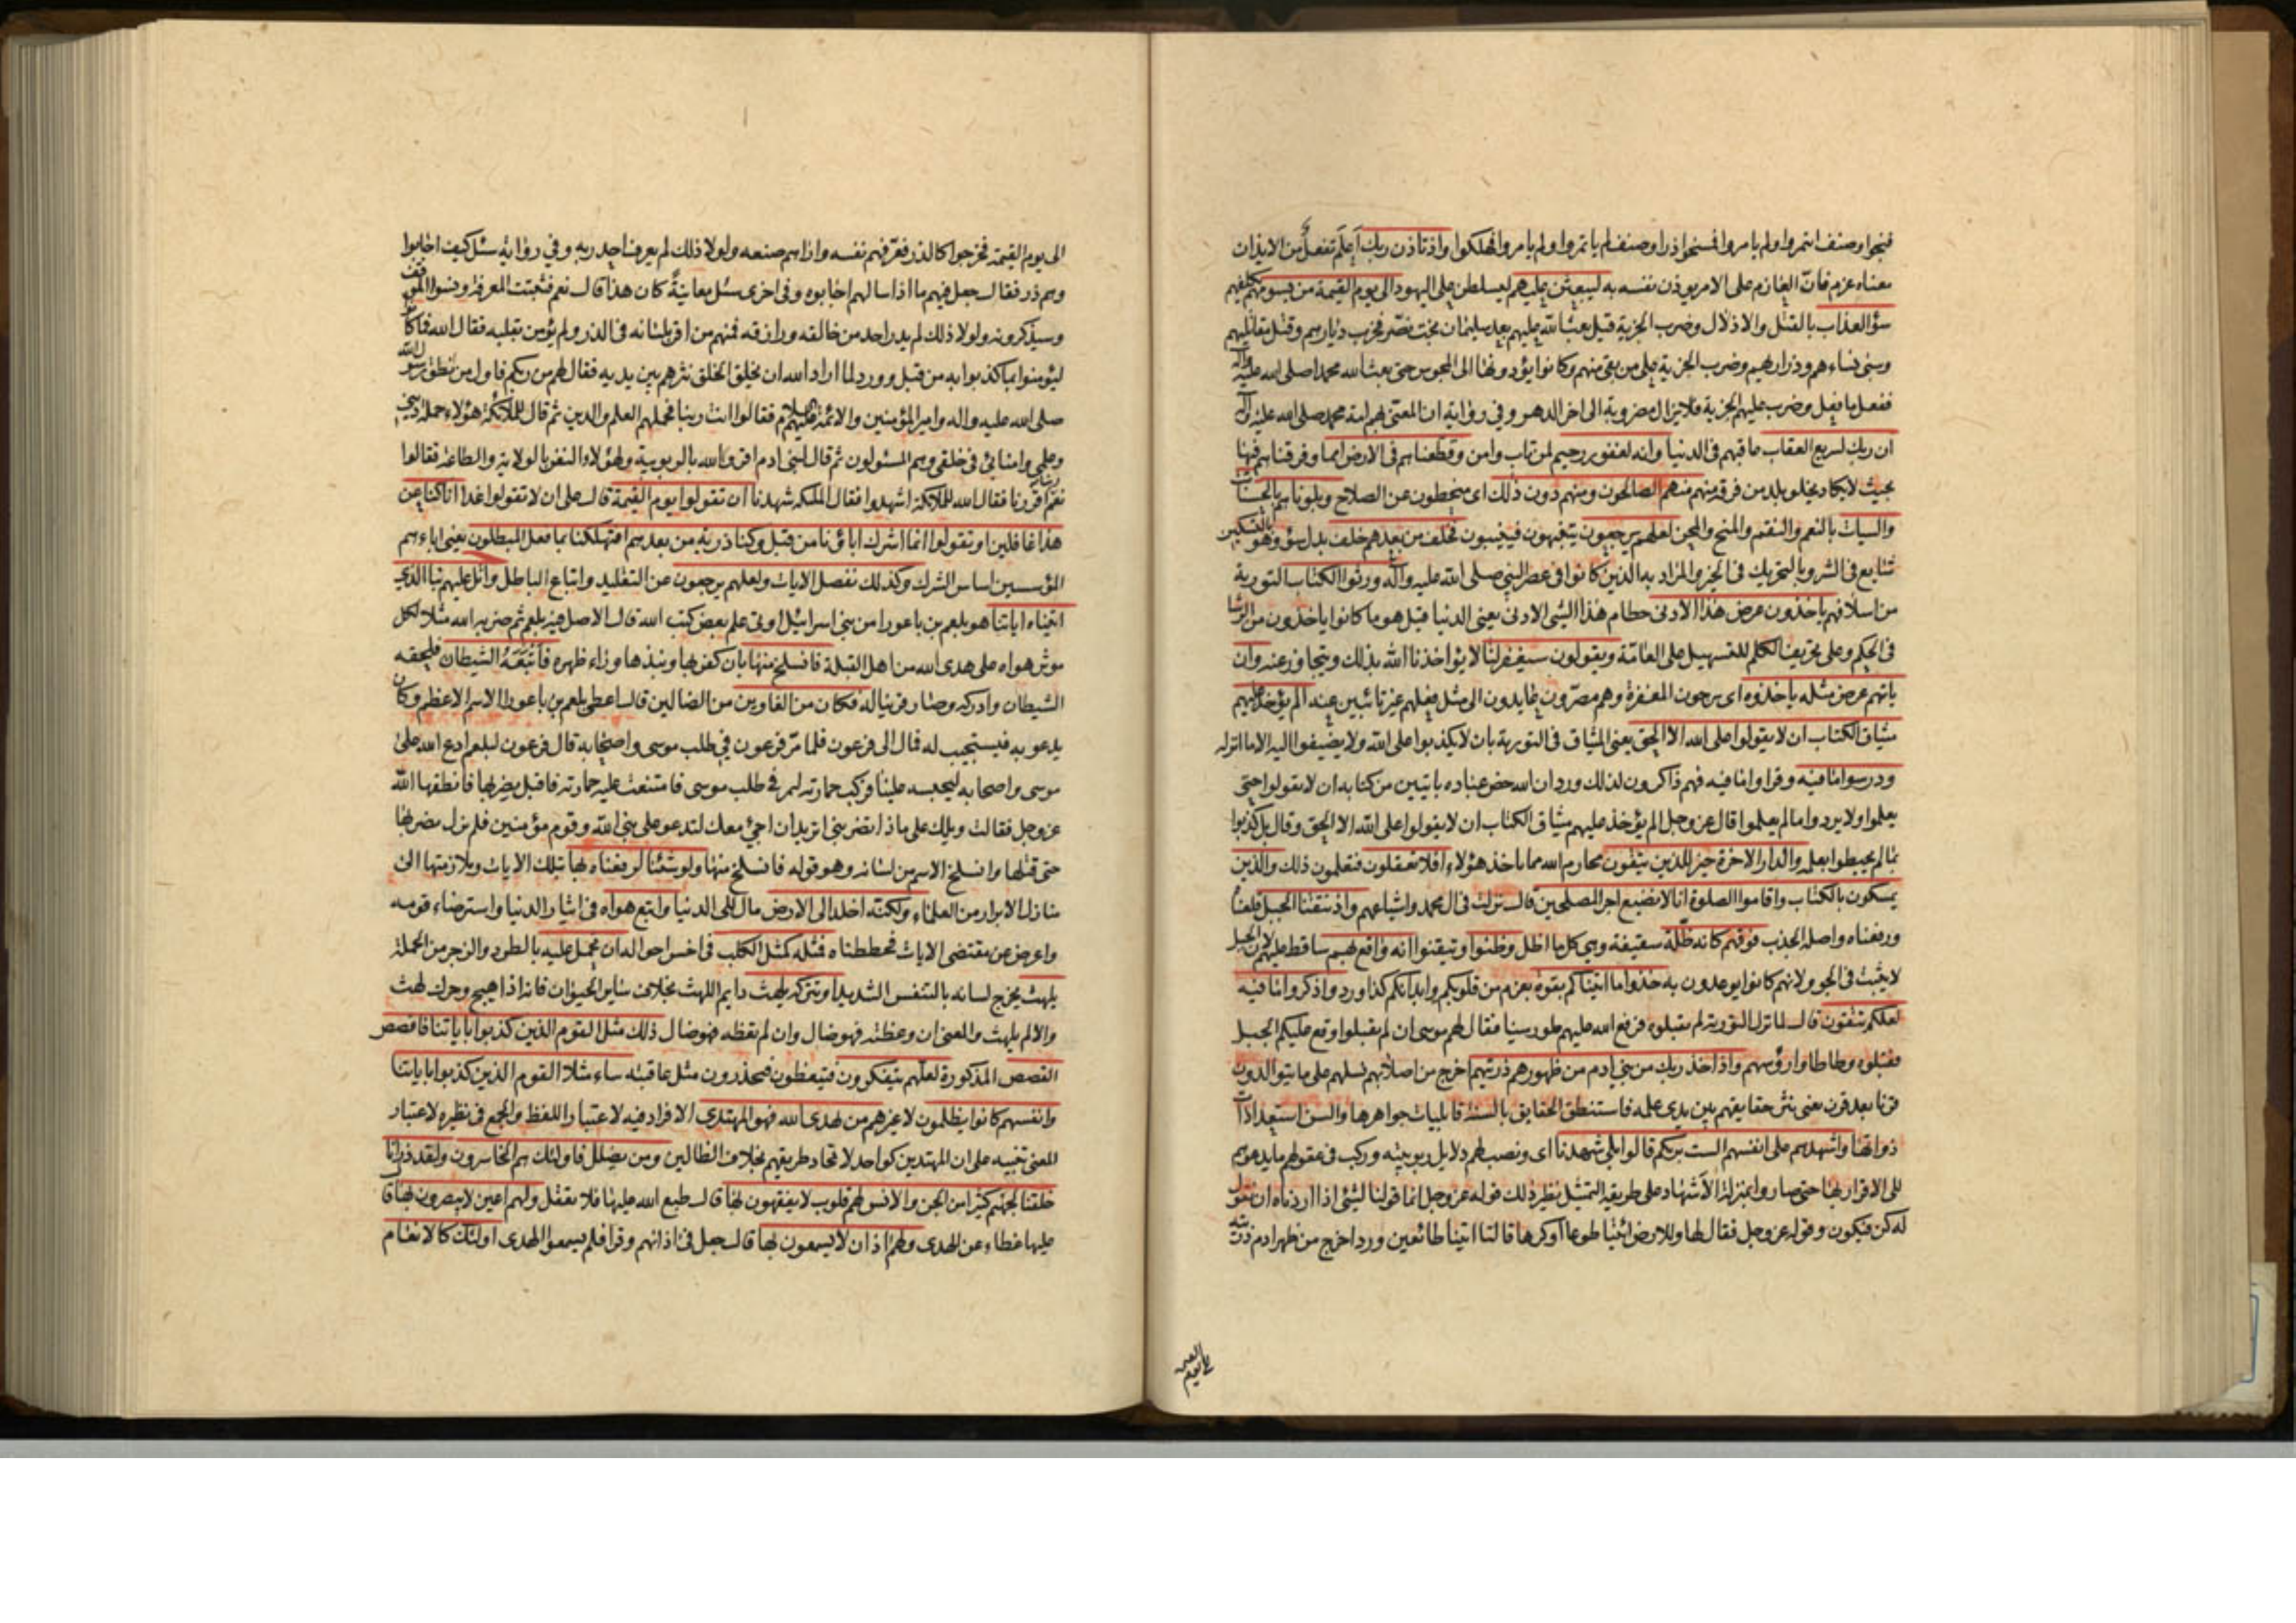 فنجوا وصنف ائتمروا ولم يامروا فمسخوا ذرا وصنف لم ياتمروا ولم يامروا فهلكوا واذ تاذن ربك اعلم تفعل من الايذان
معناه عزم فان العازم على الامر يوذن نفسه به ليبعثن عليهم ليسلطن على اليهود الى يوم القيمة من يسومهم يكلفهم
سوء العذاب بالقتل والاذلال وضرب الجزية قيل بعث الله عليهم بعد سليمان بخت نصر فخرب ديارهم وقتل مقاتليهم
وسبى نساءهم وذراريهم وضرب الجزية على من بقى منهم وكانوا يؤدونها الى المجوس حتى بعث الله محمدا صلى الله عليه واله
ففعل ما فعل وضرب عليهم الجزية فلا يزال مضروبة الى اخر الدهر وفى رواية ان المعنى بهم امة محمد صلى الله عليه واله
ان ربك لسريع العقاب عاقبهم فى الدنيا وانه لغفور رحيم لمن تاب وامن وقطعناهم فى الارض امما وفرقناهم فيها
بحيث لا يكاد يخلو بلد من فرقة منهم منهم الصالحون ومنهم دون ذلك اى منحطون عن الصلاح وبلوناهم بالحسنات
والسيات بالنعم والنقم والمنح والمحن لعلهم يرجعون يتنبهون فينيبون فخلف من بعدهم خلف بدل سوء وهو بالتسكين
شايع فى الشر وبالتحريك فى الخير والمراد به الذين كانوا فى عصر النبى صلى الله عليه واله ورثوا الكتاب التورية
من اسلافهم ياخذون عرض هذا الادنى حطام هذا الشئ الادنى يعنى الدنيا قيل هو ما كانوا ياخذون من الرشا
فى الحكم وعلى تحريف الكلم للتسهيل على العامة ويقولون سيغفر لنا لا يؤاخذنا الله بذلك ويتجاوز عنه وان
ياتهم عرض مثله ياخذوه اى يرجون المغفرة وهم مصرون عايدون الى مثل فعلهم غير تائبين عنه الم يؤخذ عليهم
ميثاق الكتاب ان لا يقولوا على الله الا الحق يعنى الميثاق فى التورية بان لا يكذبوا على الله ولا يضيفوا اليه الا ما انزله
ودرسوا ما فيه وقراوا ما فيه فهم ذاكرون لذلك ورد ان الله خص عباده بايتين من كتابه ان لا يقولوا حتى
يعلموا ولا يردوا ما لم يعلموا قال عز وجل الم يؤخذ عليهم ميثاق الكتاب ان لا يقولوا على الله الا الحق وقال بل كذبوا
بما لم يحيطوا بعلمه والدار الاخرة خير للذين يتقون محارم الله مما ياخذ هؤلاء افلا تعقلون فتعلمون ذلك والذين
يمسكون بالكتاب واقاموا الصلوة انا لا نضيع اجر المصلحين قال نزلت فى ال محمد واشياعهم واذ نتقنا الجبل قلعنا
ورفعناه واصله الجذب فوقهم كانه ظلة سقيفة وهى كل ما اظل وظنوا وتيقنوا انه واقع بهم ساقط عليهم لان الجبل
لا يثبت فى الجو ولانهم كانوا يوعدون به خذوا ما اتيناكم بقوة بعزم من قلوبكم وابدانكم كذا ورد واذكروا ما فيه
لعلكم تتقون قال لما نزل التورية لم يقبلوه فرفع الله عليهم طور سينا فقال لهم موسى ان لم تقبلوا وقع عليكم الجبل
فقبلوه وطاطاوا رؤسهم واذ اخذ ربك من بنى ادم من ظهورهم ذريتهم اخرج من اصلابهم نسلهم على ما يتوالدون
قرنا بعد قرن يعنى نثر حقايقهم بين يدى علمه فاستنطق الحقايق بالسنة قابليات جواهرها والسن استعدادات
ذواتها واشهدهم على انفسهم الست بربكم قالوا بلى شهدنا اى ونصب لهم دلايل ربوبيته وركب فى عقولهم ما يدعوهم
الى الاقرار بها حتى صاروا بمنزلة الاشهاد على طريقة التمثيل نظير ذلك قوله عز وجل انما قولنا لشئ اذا اردناه ان نقول
له كن فيكون وقوله عز وجل فقال لها وللارض ائتيا طوعا او كرها قالتا اتينا طائعين ورد اخرج من ظهر ادم ذريته
الى يوم القيمة
الى يوم القيمة فخرجوا كالذر فعرفهم نفسه واراهم صنعه ولولا ذلك لم يعرف احد ربه وفى رواية سئل كيف اجابوا
وهم ذر فقال جعل فيهم ما اذا سالهم اجابوه وفى اخرى سئل معاينة كان هذا قال نعم فثبتت المعرفة ونسوا الموقف
وسيذكرونه ولولا ذلك لم يدر احد من خالقه ورازقه فمنهم من اقر بلسانه فى الذر ولم يؤمن بقلبه فقال الله فما كانوا
ليؤمنوا بما كذبوا به من قبل وورد لما اراد الله ان يخلق الخلق نثرهم بين يديه فقال لهم من ربكم فاول من نطق رسول الله
صلى الله عليه واله وامير المؤمنين والائمة عليهم السلام فقالوا انت ربنا فحملهم العلم والدين ثم قال للملائكة هؤلاء حملة دينى
وعلمى وامنائى فى خلقى وهم المسئولون ثم قال لبنى ادم اقروا لله بالربوبية ولهؤلاء النفر بالولاية والطاعة فقالوا
نعم ربنا اقررنا فقال الله للملائكة اشهدوا فقال الملئكة شهدنا ان تقولوا يوم القيمة قال على ان لا تقولوا غدا انا كنا عن
هذا غافلين او تقولوا انما اشرك اباؤنا من قبل وكنا ذرية من بعدهم افتهلكنا بما فعل المبطلون يعنى اباءهم
المؤسسين اساس الشرك وكذلك نفصل الايات ولعلهم يرجعون عن التقليد واتباع الباطل واتل عليهم نبا الذى
اتيناه اياتنا هو بلعم بن باعورا من بنى اسرائيل اوتى علم بعض كتب الله قال الاصل فيه بلعم ثم ضربه الله مثلا لكل
مؤثر هواه على هدى الله من اهل القبلة فانسلخ منها بان كفر بها ونبذها وراء ظهره فاتبعه الشيطان فلحقه
الشيطان وادركه وصار قرينا له فكان من الغاوين من الضالين قال اعطى بلعم بن باعورا الاسم الاعظم وكان
يدعو به فيستجيب له فمال الى فرعون فلما مر فرعون فى طلب موسى واصحابه قال فرعون لبلعم ادع الله على
موسى واصحابه ليحبسه علينا فركب حمارته ليمر فى طلب موسى فامتنعت عليه حمارته فاقبل يضربها فانطقها الله
عز وجل فقالت ويلك على ماذا تضربنى اتريد ان اجئ معك لتدعو على نبى الله وقوم مؤمنين فلم يزل يضربها
حتى قتلها وانسلخ الاسم من لسانه وهو قوله فانسلخ منها ولو شئنا لرفعناه بها بتلك الايات وملازمتها الى
منازل الابرار من العلماء ولكنه اخلد الى الارض مال الى الدنيا واتبع هواه فى ايثار الدنيا واسترضاء قومه
واعرض عن مقتضى الايات فحططناه فمثله كمثل الكلب فى اخس احواله ان تحمل عليه بالطرد والزجر من الحملة
يلهث يخرج لسانه بالتنفس الشديد او تتركه يلهث دايم اللهث بخلاف ساير الحيوان فانه اذا هيج وحرك لهث
والا لم يلهث والمعنى ان وعظته فهو ضال وان لم تعظه فهو ضال ذلك مثل القوم الذين كذبوا باياتنا فاقصص
القصص المذكورة لعلهم يتفكرون فيتعظون فيحذرون مثل عاقبته ساء مثلا القوم الذين كذبوا باياتنا
وانفسهم كانوا يظلمون لا غيرهم من يهدى الله فهو المهتدى الافراد فيه لاعتبار اللفظ والجمع فى نظيره لاعتبار
المعنى تنبيه على ان المهتدين كواحد لاتحاد طريقهم بخلاف الضالين ومن يضلل فاولئك هم الخاسرون ولقد ذرانا
خلقنا لجهنم كثيرا من الجن والانس لهم قلوب لا يفقهون بها قال طبع الله عليها فلا تعقل ولهم اعين لا يبصرون بها قال
عليها غطاء عن الهدى ولهم اذان لا يسمعون بها قال جعل فى اذانهم وقرا فلم يسمعوا الهدى اولئك كالانعام